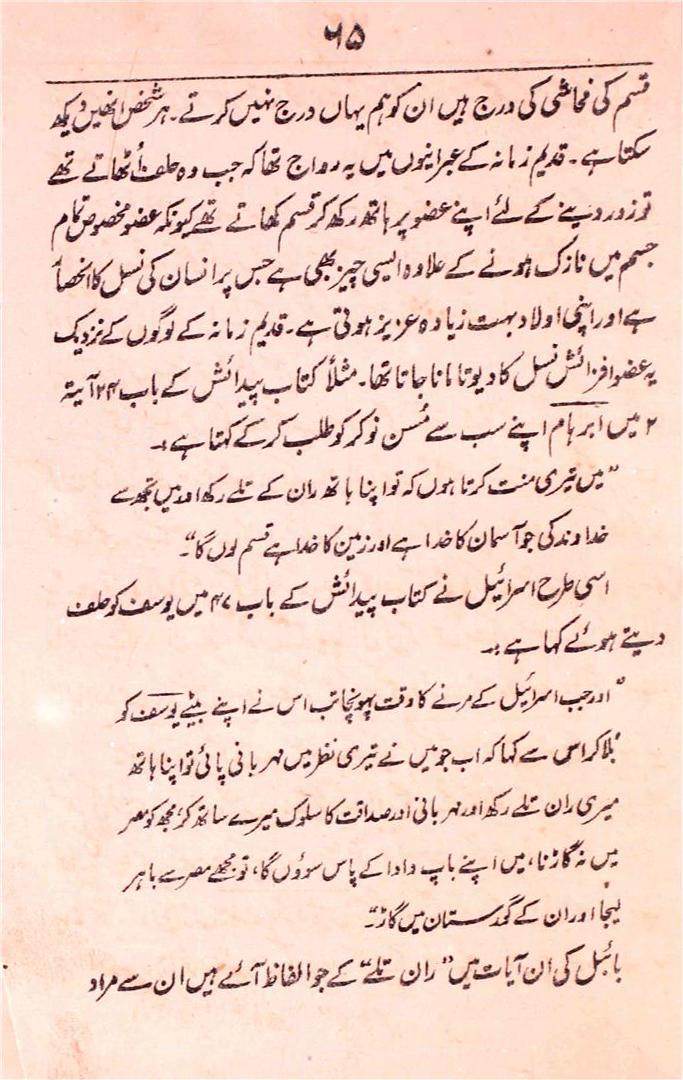 ۶۵
قسم کی فحاشی کی درج ہیں ان کو ہم یہاں درج نہیں کرتے۔ ہر شخص انھیں دیکھ
سکتا ہے۔ قدیم زمانہ کے عبرانیوں میں یہ رواج تھا کہ جب وہ حلف اُٹھاتے تھے
تو زور دینے کے لئے اپنے عضو پر ہاتھ رکھ کر قسم کھاتے تھے کیونکہ عضو مخصوص تمام
جسم میں نازک ہونے کے علاوہ ایسی چیز بھی ہے جس پر انسان کی نسل کا انحصار
ہے اور اپنی اولاد بہت زیادہ عزیز ہوتی ہے۔ قدیم زمانہ کے لوگوں کے نزدیک
یہ عضو افزائش نسل کا دیوتا مانا جاتا تھا۔ مثلاً کتاب پیدائش کے باب ۲۴ آیتہ
۲ میں ابرہام اپنے سب سے مُسن نوکر کو طلب کر کے کہتا ہے :۔
"میں تیری منت کرتا ہوں کہ تو اپنا ہاتھ ران کے تلے رکھ اور میں تجھ سے
خداوند کی جو آسمان کا خدا ہے اور زمین کا خدا ہے قسم لوں گا"۔
اسی طرح اسرائیل نے کتاب پیدائش کے باب ۴۷ میں یوسف کو حلف
دیتے ہوئے کہا ہے :۔
"اور جب اسرائیل کے مرنے کا وقت پہونچا تب اس نے اپنے بیٹے یوسف کو
بُلا کر اس سے کہا کہ اب جو میں نے تیری نظر میں مہربانی پائی تو اپنا ہاتھ
میری ران تلے رکھ اور مہربانی اور صداقت کا سلوک میرے ساتھ کر، مجھ کو مصر
میں نہ گاڑنا، میں اپنے باپ دادا کے پاس سوؤں گا، تو مجھے مصر سے باہر
لیجا اور ان کے گورستان میں گاڑ"۔
بائبل کی ان آیات میں "ران تلے" کے جو الفاظ آئے ہیں ان سے مراد